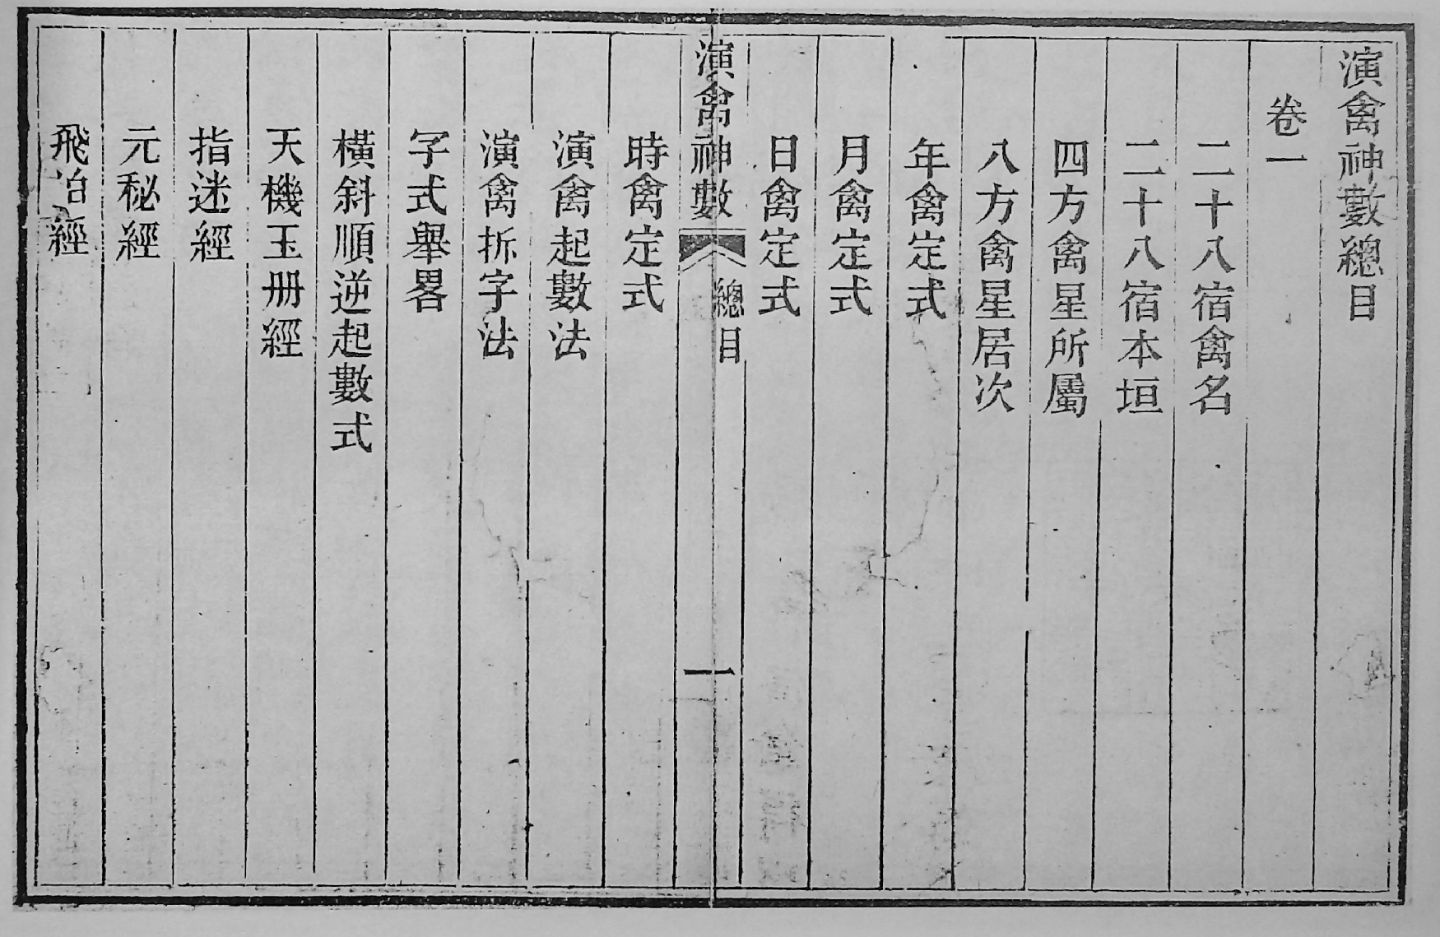 演禽神數總目
卷一
二十八宿禽名
二十八宿本垣
四方禽星所屬
八方禽星居次
年禽定式
月禽定式
日禽定式
演禽神數
總目
一
時禽定式
演禽起數法
演禽拆字法
字式舉畧
橫斜順逆起數式
天機玉册經
指迷經
元秘經
飛冶經